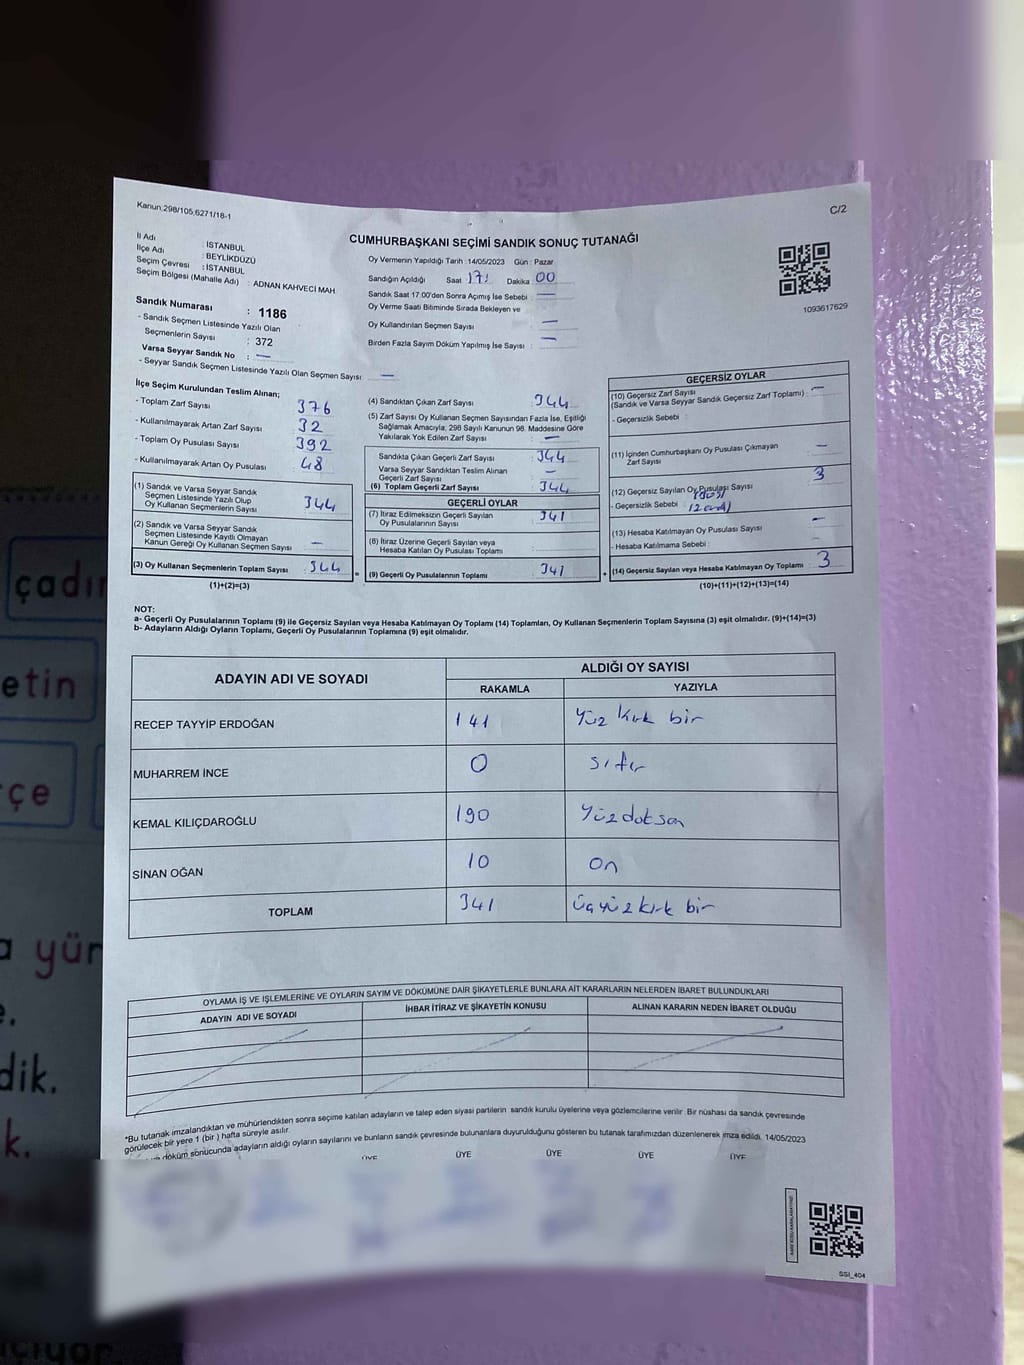 Kanun:298/105,6271/18-1
C/2
CUMHURBAŞKANI SEÇİMİ SANDIK SONUÇ TUTANAĞI
İl Adı : İSTANBUL
İlçe Adı : BEYLİKDÜZÜ
Seçim Çevresi : İSTANBUL
Seçim Bölgesi (Mahalle Adı) : ADNAN KAHVECİ MAH
Oy Vermenin Yapıldığı Tarih : 14/05/2023 Gün : Pazar
Sandığın Açıldığı Saat 17: Dakika 00
Sandık Saat 17:00'den Sonra Açımış İse Sebebi : —
Oy Verme Saati Bitiminde Sırada Bekleyen ve
Oy Kullandırılan Seçmen Sayısı —
Birden Fazla Sayım Döküm Yapılmış İse Sayısı : —
1093617629
Sandık Numarası : 1186
- Sandık Seçmen Listesinde Yazılı Olan
Seçmenlerin Sayısı : 372
Varsa Seyyar Sandık No : —
- Seyyar Sandık Seçmen Listesinde Yazılı Olan Seçmen Sayısı: —
İlçe Seçim Kurulundan Teslim Alınan;
- Toplam Zarf Sayısı 376
- Kullanılmayarak Artan Zarf Sayısı 32
- Toplam Oy Pusulası Sayısı 392
- Kullanılmayarak Artan Oy Pusulası 48
(1) Sandık ve Varsa Seyyar Sandık
Seçmen Listesinde Yazılı Olup
Oy Kullanan Seçmenlerin Sayısı 344
(2) Sandık ve Varsa Seyyar Sandık
Seçmen Listesinde Kayıtlı Olmayan
Kanun Gereği Oy Kullanan Seçmen Sayısı —
(3) Oy Kullanan Seçmenlerin Toplam Sayısı 344
(1)+(2)=(3)
(4) Sandıktan Çıkan Zarf Sayısı 344
(5) Zarf Sayısı Oy Kullanan Seçmen Sayısından Fazla İse, Eşitliği
Sağlamak Amacıyla; 298 Sayılı Kanunun 98. Maddesine Göre
Yakılarak Yok Edilen Zarf Sayısı —
Sandıkta Çıkan Geçerli Zarf Sayısı 344
Varsa Seyyar Sandıktan Teslim Alınan
Geçerli Zarf Sayısı —
(6) Toplam Geçerli Zarf Sayısı 344
GEÇERLİ OYLAR
(7) İtiraz Edilmeksizin Geçerli Sayılan
Oy Pusulalarının Sayısı 341
(8) İtiraz Üzerine Geçerli Sayılan veya
Hesaba Katılan Oy Pusulası Toplamı
= (9) Geçerli Oy Pusulalarının Toplamı 341
GEÇERSİZ OYLAR
(10) Geçersiz Zarf Sayısı
(Sandık ve Varsa Seyyar Sandık Geçersiz Zarf Toplamı) : —
- Geçersizlik Sebebi :
(11) İçinden Cumhurbaşkanı Oy Pusulası Çıkmayan
Zarf Sayısı —
(12) Geçersiz Sayılan Oy Pusulası Sayısı 3
- Geçersizlik Sebebi
(13) Hesaba Katılmayan Oy Pusulası Sayısı —
- Hesaba Katılmama Sebebi :
+ (14) Geçersiz Sayılan veya Hesaba Katılmayan Oy Toplamı 3
(10)+(11)+(12)+(13)=(14)
NOT:
a- Geçerli Oy Pusulalarının Toplamı (9) ile Geçersiz Sayılan veya Hesaba Katılmayan Oy Toplamı (14) Toplamları, Oy Kullanan Seçmenlerin Toplam Sayısına (3) eşit olmalıdır. (9)+(14)=(3)
b- Adayların Aldığı Oyların Toplamı, Geçerli Oy Pusulalarının Toplamına (9) eşit olmalıdır.
ADAYIN ADI VE SOYADI ALDIĞI OY SAYISI
RAKAMLA YAZIYLA
RECEP TAYYİP ERDOĞAN 141 yüz kırk bir
MUHARREM İNCE 0 sıfır
KEMAL KILIÇDAROĞLU 190 yüzdoksan
SİNAN OĞAN 10 on
TOPLAM 341 üçyüzkırk bir
OYLAMA İŞ VE İŞLEMLERİNE VE OYLARIN SAYIM VE DÖKÜMÜNE DAİR ŞİKAYETLERLE BUNLARA AİT KARARLARIN NELERDEN İBARET BULUNDUKLARI
ADAYIN ADI VE SOYADI İHBAR İTİRAZ VE ŞİKAYETİN KONUSU ALINAN KARARIN NEDEN İBARET OLDUĞU
*Bu tutanak imzalandıktan ve mühürlendikten sonra seçime katılan adayların ve talep eden siyasi partilerin sandık kurulu üyelerine veya gözlemcilerine verilir. Bir nüshası da sandık çevresinde
görülecek bir yere 1 (bir ) hafta süreyle asılır.
döküm sonucunda adayların aldığı oyların sayılarını ve bunların sandık çevresinde bulunanlara duyurulduğunu gösteren bu tutanak tarafımızdan düzenlenerek imza edildi. 14/05/2023
ÜYE ÜYE ÜYE ÜYE ÜYE
SSI_404
çadır
etin
çe
yür
dik.
k.